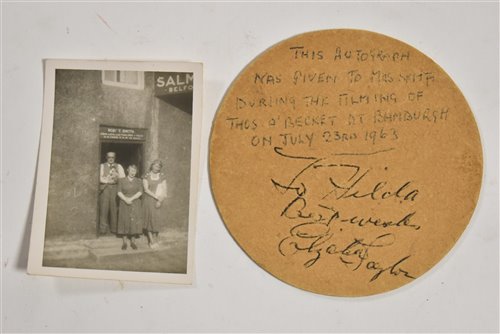 SALM
BELFO
ROBT T. SMITH
THIS AUTOGRAPH
WAS GIVEN TO MRS SMITH
DURING THE FILMING OF
THOS A'BECKET AT BAMBURGH
ON JULY 23RD 1963
To Hilda
Best wishes
Elizabeth Taylor